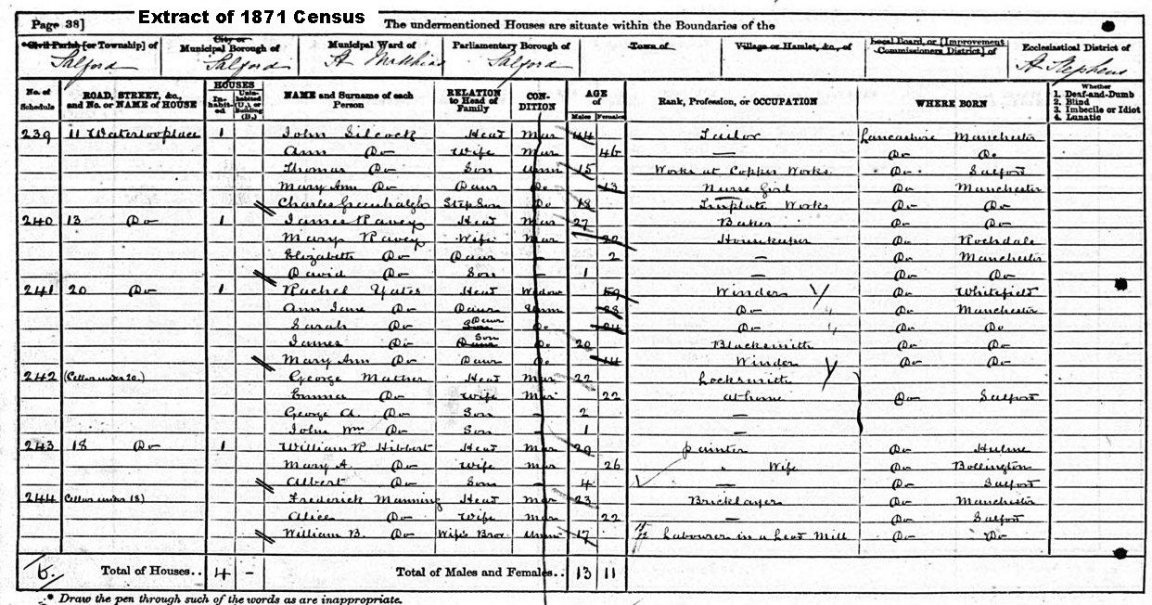 Extract of 1871 Census
Page 38] The undermentioned Houses are situate within the Boundaries of the
Civil Parish [or Township] of City or Municipal Borough of Municipal Ward of Parliamentary Borough of Town of Village or Hamlet, &c., of Local Board, or [Improvement Commissioners District] of Ecclesiastical District of
Salford Salford St Matthias Salford St Stephens
No. of Schedule ROAD, STREET, &c., and No. or NAME of HOUSE HOUSES In-habit-ed Unin-habited (U.), or Building (B.) NAME and Surname of each Person RELATION to Head of Family CON-DITION AGE of Males Females Rank, Profession, or OCCUPATION WHERE BORN Whether 1. Deaf-and-Dumb 2. Blind 3. Imbecile or Idiot 4. Lunatic
239 11 Waterloo place 1 John Silcock Head Mar 44 Tailor Lancashire Manchester
Ann Do Wife Mar 46 — Do Do
Thomas Do Son Unm 15 Works at Copper Works Do Salford
Mary Ann Do Daur Do 13 Nurse Girl Do Manchester
Charles Greenhalgh Step Son Do 18 Tinplate Works Do Do
240 13 Do 1 James Pavey Head Mar 27 Baker Do Do
Mary Pavey Wife Mar Housekeeper Do Rochdale
Elizabeth Do Daur — 2 — Do Manchester
David Do Son — 1 — Do Do
241 20 Do 1 Rachel Yates Head Widow 59 Winders Do Whitefield
Ann Jane Do Daur Unm Do Do Manchester
Sarah Do Daur Do 24 Do Do Do
James Do Son Do 20 Blacksmith Do Do
Mary Ann Do Daur Do 14 Winder Do Do
242 (Cellar under 20.) George Mather Head Mar 22 Locksmith
Emma Do Wife Mar 22 at home Do Salford
George A. Do Son — 2 —
John Wm Do Son — 1 —
243 18 Do 1 William R Hibbert Head Mar 29 painter Do Hulme
Mary A. Do Wife Mar 26 " Wife Do Bollington
Albert Do Son — 4 — Do Salford
244 (Cellar under 18) Frederick Manning Head Mar 23 Bricklayers Do Manchester
Alice Do Wife Mar 22 — Do Salford
William B. Do Wife's Bro Unm 17 Labourer in a Mill Do Do
6. Total of Houses.. 4 - Total of Males and Females.. 13 11
* Draw the pen through such of the words as are inappropriate.